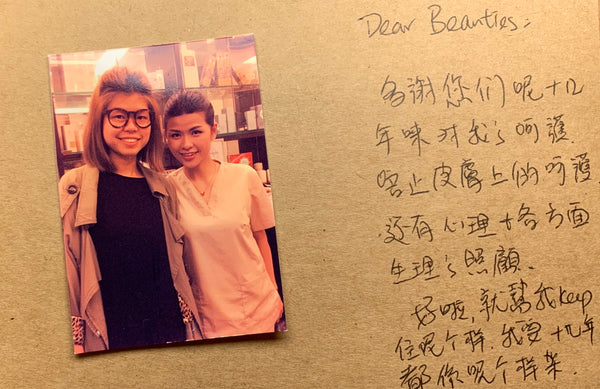 Dear Beauties:
多謝您们呢十几
年咪对我了呵護
唔止皮膚上的呵護
还有心理+各方面
生理了照顧.
好啦,就幫我keep
住呢个样.我要十九年
都係呢个样架.